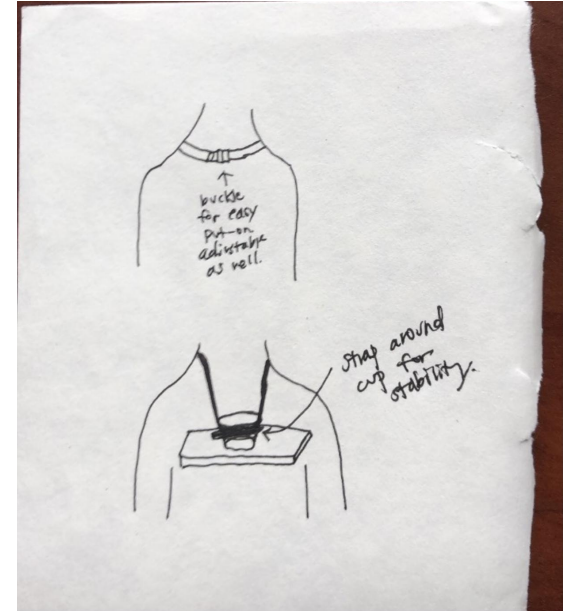 buckle
for easy
put-on
adjustable
as well.
strap around
cup for
stability.